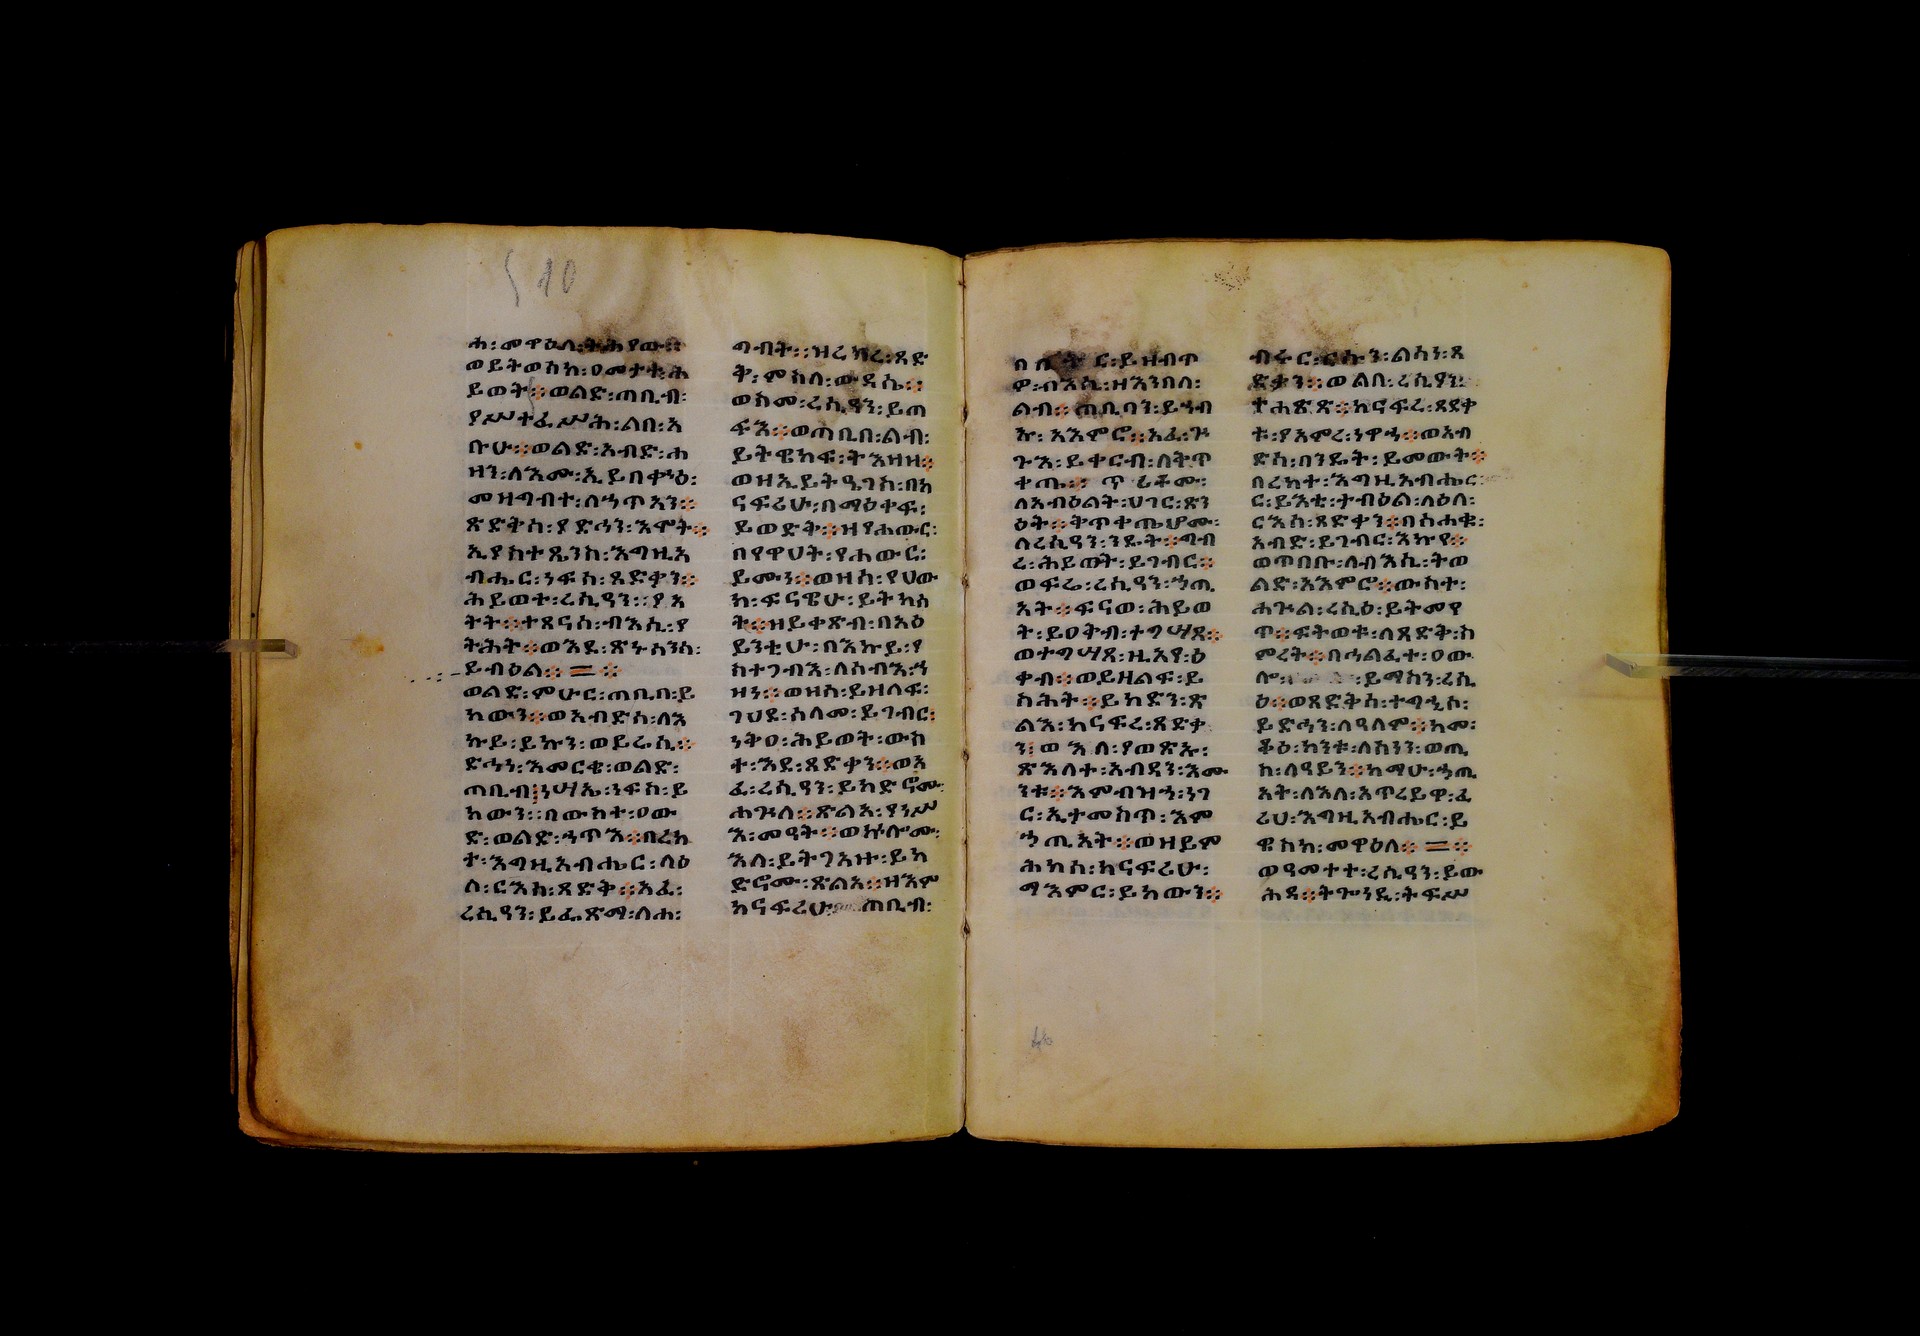 ሐ፡መዋዕለ፡ትሕየው።
ወይትወስክ፡ዐመተት፡ሕ
ይወት።ወልድ፡ጠቢብ፡
ያሥተፌሥሕ፡ልበ፡አ
ቡሁ።ወልድ፡አብድ፡ሐ
ዘን፡ለእሙ፡ኢይበቀኍዕ፡
መዝግብተ፡ለኃጥአን።
ጽድቅሰ፡ያድኅን፡እሞት።
ኢያስተጼንስ፡እግዚአ
ብሔር፡ነፍሰ፡ጻድቃን።
ሕይወተ፡ረሲዓን፡፡ያአ
ትት።ተጸናስ፡ብእሲ፡ያ
ትሕት።ወእደ፡ጽኑዓንሰ፡
ይብዕል። = ።
ወልድ፡ምሁር፡ጠቢበ፡ይ
ከውን።ወአብድሰ፡ለእ
ኩይ፡ይኩን፡ወይራሲ።
ድኅነ፡እመርቄ፡ወልድ፡
ጠቢብ፡ነሣኤ፡ነፍስ፡ይ
ከውን፡፡በውስተ፡ዐው
ድ፡ወልድ፡ኃጥእ።በረከ
ተ፡እግዚአብሔር፡ላዕ
ለ፡ርእሰ፡ጻድቅ።አፈ፡
ረሲዓን፡ይፌጽማ፡ለሐ፡
ግብት፡፡ዝረከረ፡ጻድ
ቅ፡ምስለ፡ውዳሴ።
ወስመ፡ረሲዓን፡ይጠ
ፍእ።ወጠቢበ፡ልብ፡
ይትዌከፍ፡ትእዛዘ።
ወዘኢይትዔገስ፡በከ
ናፍሪሁ፡በማዕቀፍ፡
ይወድቅ።ዘየሐውር፡
በየዋህት፡የሐውር፡
ይሙን።ወዘሰ፡የሀው
ክ፡ፍናዌሁ፡ይትከሰ
ት።ዘይቀጽብ፡በአዕ
ይንቲሁ፡በእኩይ፡ያ
ስተጋብእ፡ለሰብእ፡ኀ
ዘነ።ወዘሰ፡ይዘልፍ፡
ገህደ፡ሰላመ፡ይገብር፡
ነቅዐ፡ሕይወት፡ውስ
ተ፡እደ፡ጻድቃን።ወአ
ፈ፡ረሲዓን፡ይከድኖሙ
ሐጕለ።ጽልአ፡ያነሥ
እ፡መዓት።ወኵሎሙ፡
እለ፡ይትገአዙ፡ይከ
ድኖሙ፡ጽልአ።ዘእም
ከናፍሪሁ፡ ጠቢብ፡
በ ር፡ይዘብጥ
ዎ፡ብእሲ፡ዘእንበለ፡
ልብ።ጠቢባን፡ይኀብ
ኡ፡አእምሮ።አፈ፡ጐ
ጉእ፡ይቀርብ፡ለትጥ
ቀጤ፡፡ ጥሪቶሙ፡
ለአብዕልት፡ሀገር፡ጽን
ዕት።ቅጥቀጤሆሙ፡
ለረሲዓን፡ንዴት።ግብ
ረ፡ሕይወት፡ይገብር።
ወፍሬ፡ረሲዓን፡ኀጢ
አት።ፍናወ፡ሕይወ
ት፡ይዐቅብ፡ተግሣጸ።
ወተግሣጸ፡ዚአየ፡ዕ
ቀብ።ወይዘልፍ፡ይ
ስሕት።ይከድን፡ጽ
ልእ፡ከናፍረ፡ጻድቃ
ን፡ወእለ፡ያወጽኡ፡
ጽእለተ፡አብዳን፡እሙ
ንቱ።እምብዝኀ፡ነገ
ር፡ኢተመስጥ፡እም
ኀጢአት።ወዘይም
ሕክሰ፡ከናፍሪሁ፡
ማእምር፡ይከውን።
ብሩር፡ርኩን፡ልሳነ፡ጻ
ድቃን።ወልበ፡ረሲዓን
ተሐጽጽ።ከናፍረ፡ጻድቃ
ት፡ያአምረ፡ነዋኀ።ወአብ
ድሰ፡በንዴት፡ይመውት።
በረከተ፡እግዚአብሔር፡
ር፡ይእቲ፡ታብዕል፡ላዕለ፡
ርእሰ፡ጻድቃን።በሰሐቁ፡
አብድ፡ይገብር፡እኩየ።
ወጥበቡ፡ለብእሲ፡ትወ
ልድ፡አእምሮ።ውስተ፡
ሐጕል፡ረሲዕ፡ይትመየ
ጥ።ፍትወቱ፡ለጻድቅ፡ስ
ምረት።በኀልፈተ፡ዐው
ሎ ይማስን፡ረሲ
ዕ።ወጻድቅሰ፡ተግኂሶ፡
ይድኅን፡ለዓለም።ከመ፡
ቆዕ፡ከንቱ፡ለስነን፡ወጢ
ስ፡ለዓይን።ከማሁ፡ኃጢ
አት፡ለእለ፡አጥረይዋ፡ፈ
ሪሀ፡እግዚአብሔር፡ይ
ዌስክ፡መዋዕለ። = ።
ወዓመተተ፡ረሲዓን፡ይው
ሕዳ።ትጐንዲ፡ትፍሥ